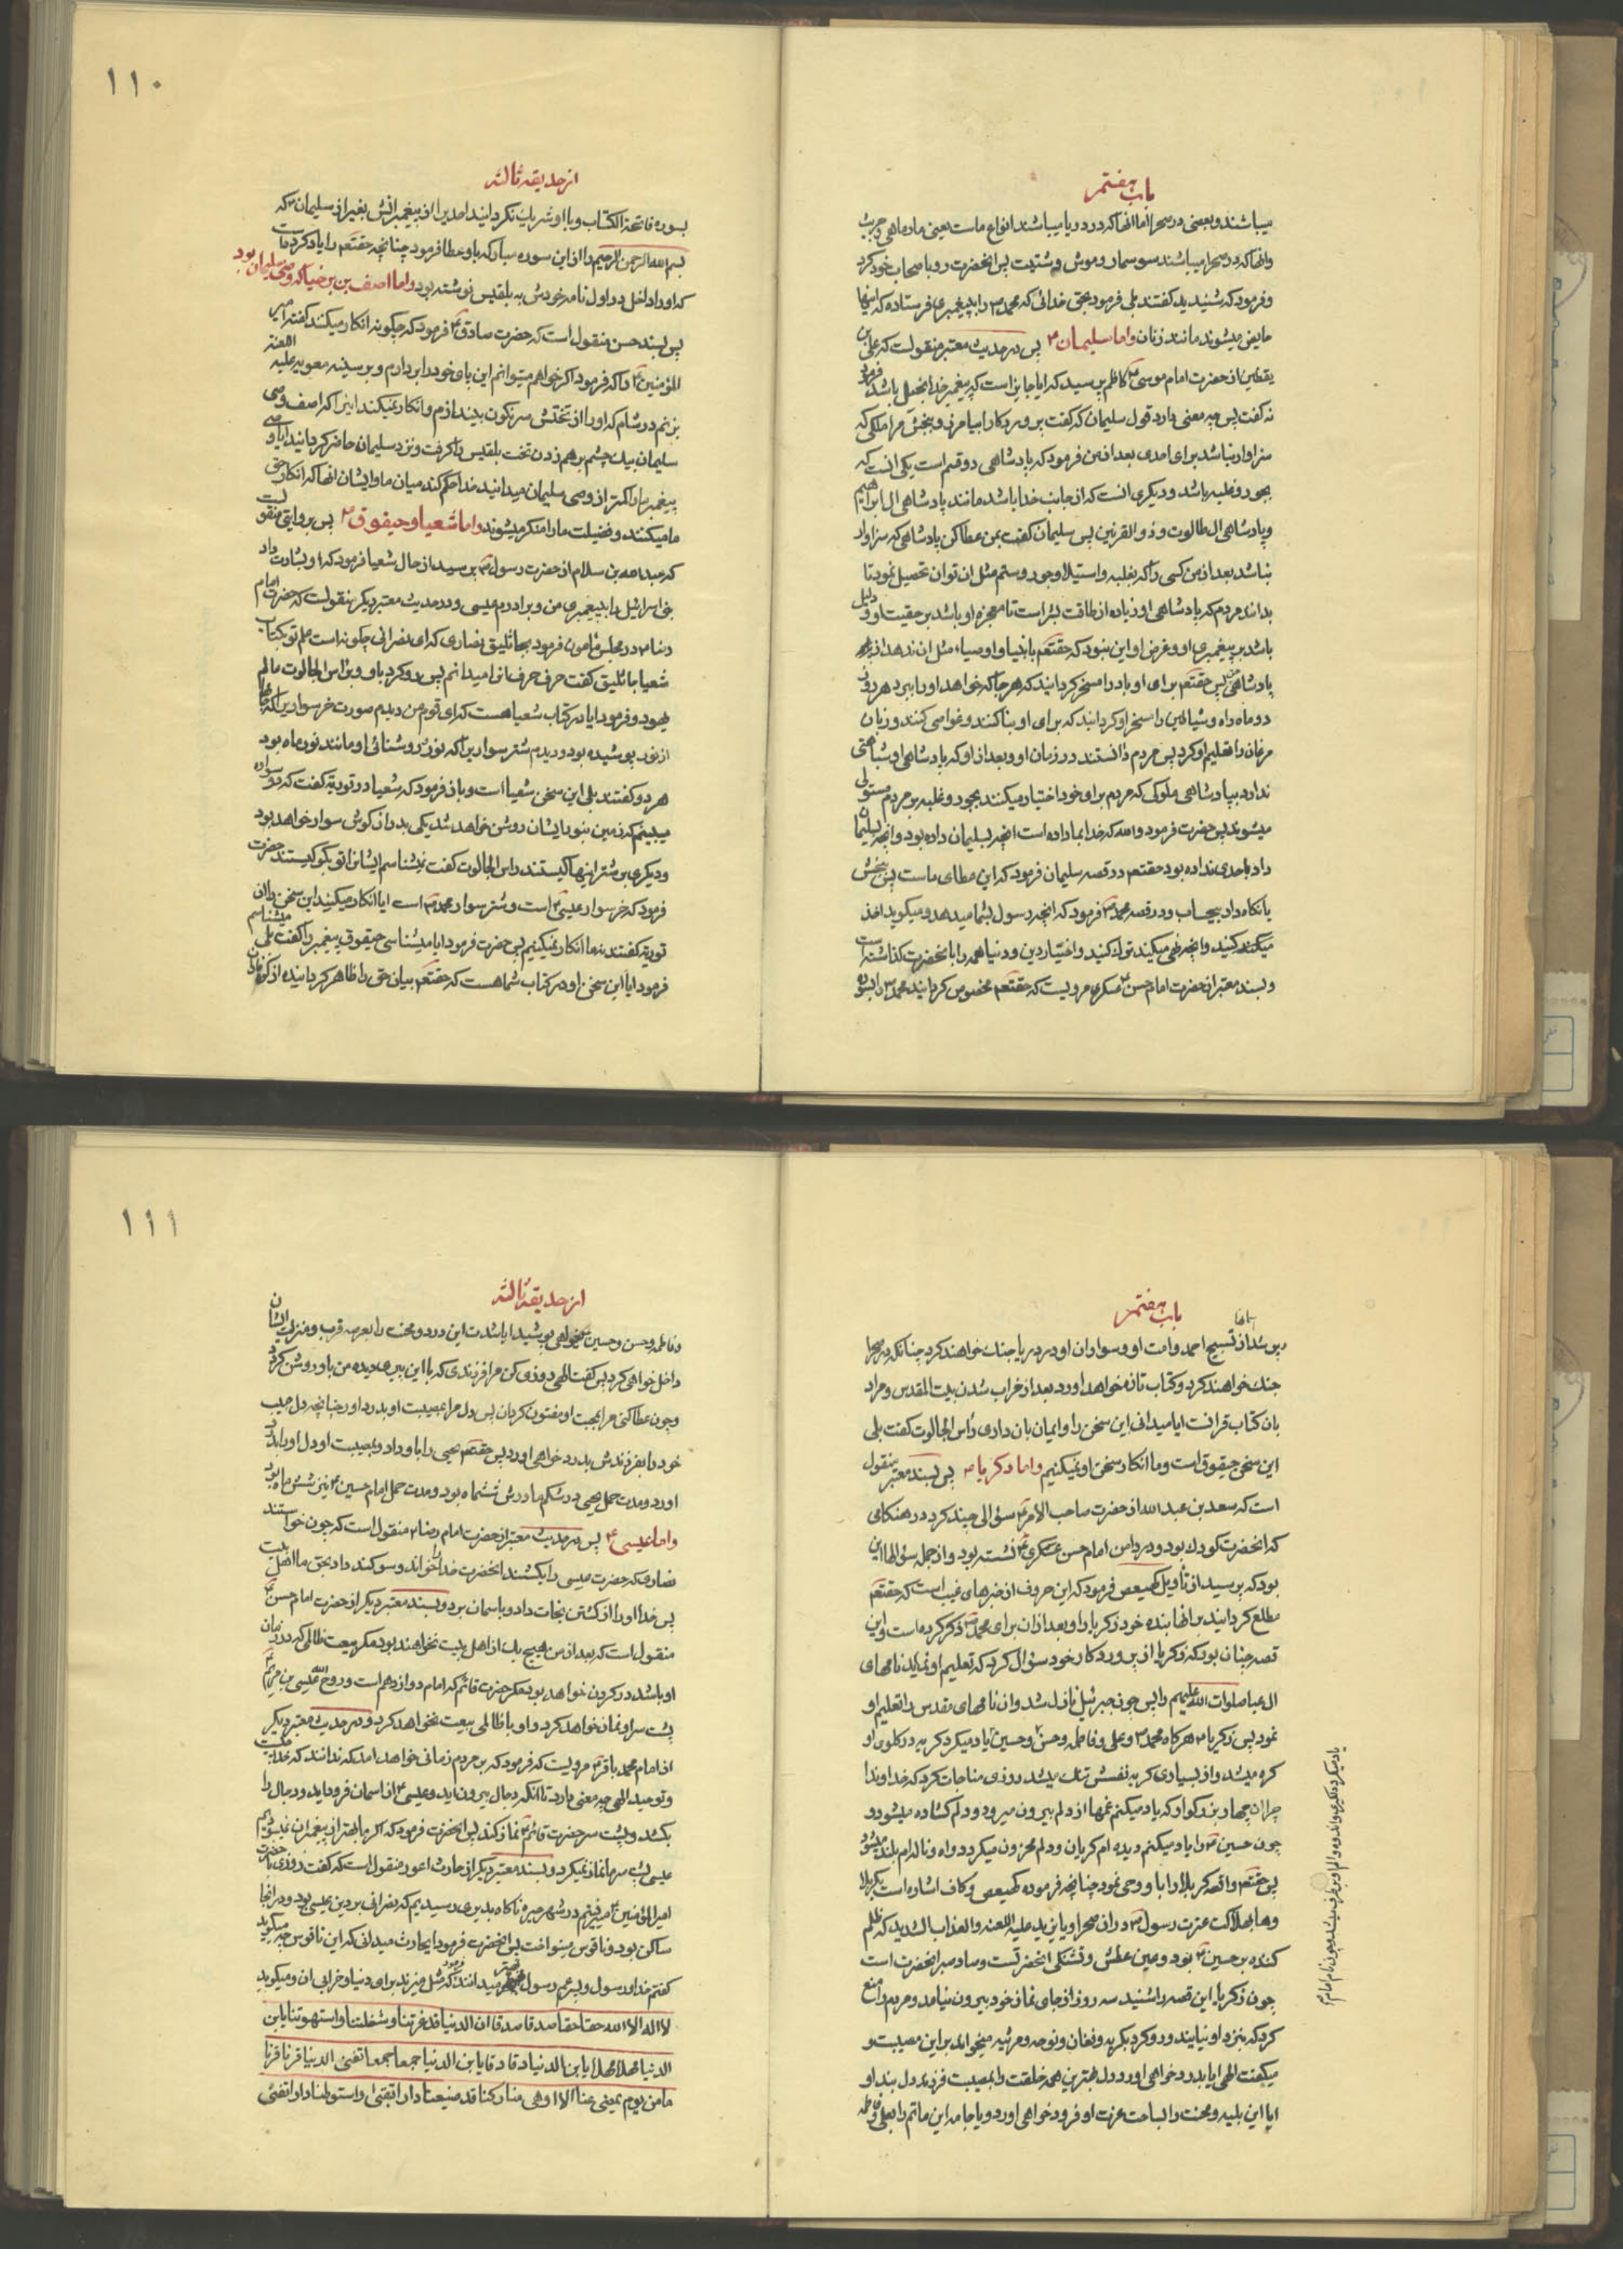 باب هفتم
میباشند و بعضی در صحرا اما انها که در دریا میباشند انواع ماست یعنی مار ماهی و جریث
وانها که در صحرا میباشند سوسمار و موش دشتیست پس انحضرت رو باصحاب خود کرد
و فرمود که شنیدید گفتند بلی فرمود بحق خدائی که محمد ص را به پیغمبری فرستاده که اینها
حایض میشوند مانند زنان واما سلیمان ع پس در حدیث معتبر منقولست که علی بن
یقطین از حضرت امام موسی کاظم ع پرسید که ایا جایز است که پیغمبر خدا بخیل باشد فرمود
نه گفت پس چه معنی دارد قول سلیمان که گفت پروردگارا بیامرز مرا و ببخش مرا ملکی که
سزاوار نباشد برای احدی بعد از من فرمود که پادشاهی دو قسم است یکی انست که
بجور و غلبه باشد و دیگری انست که از جانب خدا باشد مانند پادشاهی ال ابراهیم
و پادشاهی ال طالوت و ذو القرنین پس سلیمان گفت بمن عطا کن پادشاهی که سزاوار
نباشد بعد از من کسی را که بغلبه و استیلا و جور و ستم مثل ان توان تحصیل نمود تا
بدانند مردم که پادشاهی او زیاده از طاقت بشر است تا معجزه او باشد بر حقیت او و دلیل
باشد بر پیغمبری او و غرض او این نبود که حقتعم بانبیا و اوصیاء مثل ان ندهد از
پادشاهی پس حقتعم برای او باد را مسخر گردانید که هر جا که خواهد او را ببرد هر روزی
دو ماه راه و شیاطین را مسخر او گردانید که برای او بنا کنند و غواصی کنند و زبان
مرغان را تعلیم او کرد پس مردم دانستند در زمان او و بعد از او که پادشاهی او شباهتی
ندارد بپادشاهی ملوکی که مردم برای خود اختیار میکنند بجور و غلبه بر مردم مستولی
میشوند پس حضرت فرمود والله که خدا بما داده است انچه بسلیمان داده بود و انچه بسلیمان
داد باحدی نداده بود حقتعم در قصه سلیمان فرمود که این عطای ماست پس ببخش
یا نگاه دار بیحساب و در قصه محمد ص فرمود که انچه رسول بشما میدهد و میگوید اخذ
میکنید کنید و انچه نهی میکند ترک کنید و اختیار دین و دنیا همه را بانحضرت گذاشته است
و بسند معتبر از حضرت امام حسن عسکری مرویست که حقتعم مخصوص گردانید محمد ص را بسوره
١١٠
از حدیقه ثالثه
بسوره فاتحة الکتاب و با او شریک نگردانید احدیرا از پیغمبرانش بغیر از سلیمان ع که
بسم الله الرحمن الرحیم را از این سوره مبارکه باو عطا فرمود چنانچه حقتعم را یاد کرد
که او را داخل در اول نامه خودش به بلقیس نوشته بود واما اصف بن برخیا که وصی سلیمان بود
پس بسند حسن منقول است که حضرت صادق ع فرمود که چگونه انکار میکنند گفته امیر
المؤمنین ع را که فرمود اگر خواهم میتوانم این پای خود را بردارم و بر سینه معویه علیه اللعنه
بزنم در شام که او را از تختش سرنگون بیندازم و انکار نمیکنند اینرا که اصف وصی
سلیمان بیک چشم برهم زدن تخت بلقیس را گرفت و نزد سلیمان حاضر گردانید ایا وصی
پیغمبر ما را کمتر از وصی سلیمان میدانید خدا حکم کند میان ما و ایشان انها که انکار حق
ما میکنند و فضیلت ما را منکر میشوند واما شعیا و حیقوق ع پس بروایتی منقولست
که عبدالله بن سلام از حضرت رسول ص پرسید از حال شعیا فرمود که او بشارت داد
بنی اسرائیل را به پیغمبری من و برادرم عیسی و در حدیث معتبر دیگر منقولست که حضرت امام
رضا ع در مجلس مامون فرمود بجاثلیق نصاری که ای نصرانی چگونه است علم تو بکتاب
شعیا جاثلیق گفت حرف حرف انرا میدانم پس رو کرد باو و براس الجالوت عالم
یهود و فرمود ایا در کتاب شعیا هست که ای قوم من دیدم صورت خر سواریرا که جامها
از نور پوشیده بود و دیدم شتر سواریرا که نور و روشنائی او مانند نور ماه بود
هر دو گفتند بلی این سخن شعیا است و باز فرمود که شعیا در توریة گفت که دو سواره
میبینم که زمین بنور ایشان روشن خواهد شد یکی بر درازگوش سوار خواهد بود
و دیگری بر شتر اینها کیستند راس الجالوت گفت نمیشناسم ایشانرا تو بگو کیستند حضرت
فرمود که خر سوار عیسی ع است و شتر سوار محمد ص است ایا انکار میکنید این سخن را از
توریة گفتند نه ما انکار نمیکنیم پس حضرت فرمود ایا میشناسی حیقوق پیغمبر را گفت بلی میشناسم
فرمود ایا این سخن او در کتاب شما هست که حقتعم بیان حق را ظاهر گردانیده از کوه فاران
باب هفتم
و پر شد از تسبیح احمد و امت او و سواران او در دریا جنگ خواهند کرد چنانکه در صحرا
جنگ خواهند کرد و کتاب تازه خواهد اورد بعد از خراب شدن بیت المقدس و مراد
بان کتاب قرانست ایا میدانی این سخن را و ایمان بان داری راس الجالوت گفت بلی
این سخن حیقوق است و ما انکار سخن او نمیکنیم واما زکریا ع پس بسند معتبر منقول
است که سعد بن عبد الله از حضرت صاحب الامر ع سؤالی چند کرد در هنگامی
که انحضرت کودک بود و در دامن امام حسن عسکری ع نشسته بود و از جمله سؤالها این
بود که پرسید از تأویل کهیعص فرمود که این حروف از خبرهای غیب است که حقتعم
مطلع گردانید بر انها بنده خود زکریا را و بعد از ان برای محمد ص ذکر کرده است و این
قصه چنان بود که زکریا از پروردگار خود سؤال کرد که تعلیم او نماید نامهای
ال عبا صلوات الله علیهم را پس چون جبرئیل نازل شد و ان نامهای مقدس را تعلیم او
نمود پس زکریا ع هر گاه محمد ص و علی و فاطمه و حسن و حسین یاد میکرد گریه در گلوی او
گره میشد و از بسیاری گریه نفسش تنگ میشد روزی مناجات کرد که خداوندا
چرا ان چهار بزرگوار که یاد میکنم غمها از دلم بیرون میرود و دلم گشاده میشود و
چون حسین ع را یاد میکنم دیده ام گریان و دلم محزون میگردد و اه و ناله ام بلند میشود
پس حقتعم واقعه کربلا را باو وحی نمود چنانچه فرموده کهیعص و کاف اشاره است بکربلا
وها بهلاکت عترت رسول ص در ان صحرا و یا یزید علیه اللعنه والعذاب الشدید که ظلم
کننده بر حسین ع بود و عین عطش و تشنگی انحضرتست و صاد صبر انحضرت است
چون زکریا این قصه را شنید سه روز از جای نماز خود بیرون نیامد و مردم را منع
کرد که بنزد او نیایند و رو کرد بگریه و فغان و نوحه و مرثیه میخواند بر این مصیبت و
میگفت الهی ایا بدرد خواهی اورد دل بهترین همه خلقت را بمصیبت فرزند دلبند او
ایا این بلیه و محنت را بساحت عزت او فرود خواهی اورد و یا جامه این ماتم را بعلی و فاطمه
١١١
از حدیقه ثالثه
و فاطمه و حسن و حسین خواهی پوشید ایا شدت این درد و محنت را بعرصه قرب و منزلت ایشان
داخل خواهی کرد پس گفت الهی روزی کن مرا فرزندی که با این پیری دیده من باو روشن گردد
و چون عطا کنی مرا بمحبت او مفتون گردان پس دل مرا بمصیبت او بدرد اور چنانچه دل حبیب
خود را بفرزندش بدرد خواهی اورد پس حقتعم یحیی را باو داد و بمصیبت او دل او را بدرد
اورد و مدت حمل یحیی در شکم مادرش ششماه بود و مدت حمل امام حسین ع نیز شش ماه بود
واما عیسی ع پس در حدیث معتبر از حضرت امام رضا ع منقول است که چون خواستند
نصاری که حضرت عیسی را بکشند انحضرت خدا را خواند و سوگند داد بحق ما اهل بیت
پس خدا او را از کشتن نجات داد و باسمان برد و بسند معتبر دیگر از حضرت امام حسن ع
منقول است که بعد از من هیچ یک از اهل بیت نخواهند بود مگر بیعت ظالمی که در زمان
او باشد در گردن خواهد بود مگر حضرت قائم که امام دوازدهم است و روح الله عیسی بن مریم
پشت سر او نماز خواهد کرد و او با ظالمی بیعت نخواهد کرد و در حدیث معتبر دیگر
از امام محمد باقر ع مرویست که فرمود که بر مردم زمانی خواهد امد که ندانند که خدا کیست
و توحید الهی چه معنی دارد تا انکه دجال بیرون اید و عیسی ع از اسمان فرود اید و دجال را
بکشد و پشت سر حضرت قائم ع نماز کند پس انحضرت فرمود که اگر ما بهتر از پیغمبران نمیبودیم
عیسی پشت سر ما نماز نمیکرد و بسند معتبر دیگر از حارث اعور منقول است که گفت روزی با حضرت
امیر المؤمنین ع میرفتم در شهر حیره ناگاه بدیری رسیدیم که نصرانی بر دین عیسی بود و در انجا
ساکن بود و ناقوس مینواخت پس انحضرت فرمود ایحارث میدانی که این ناقوس چه میگوید
گفتم خدا و رسول و پسر عم رسول بهتر میدانند فرمود که مثل میزند برای دنیا و خرابی ان و میگوید
لا اله الا الله حقا حقا صدقا صدقا ان الدنیا قد غرتنا و شغلتنا و استهوتنا یابن
الدنیا مهلا مهلا یابن الدنیا دقا دقا یابن الدنیا جمعا جمعا تفنی الدنیا قرنا قرنا
مامن یوم یمضی عنا الا اوهی منا رکنا قد ضیعنا دارا تبقی و استوطنا دارا تفنی